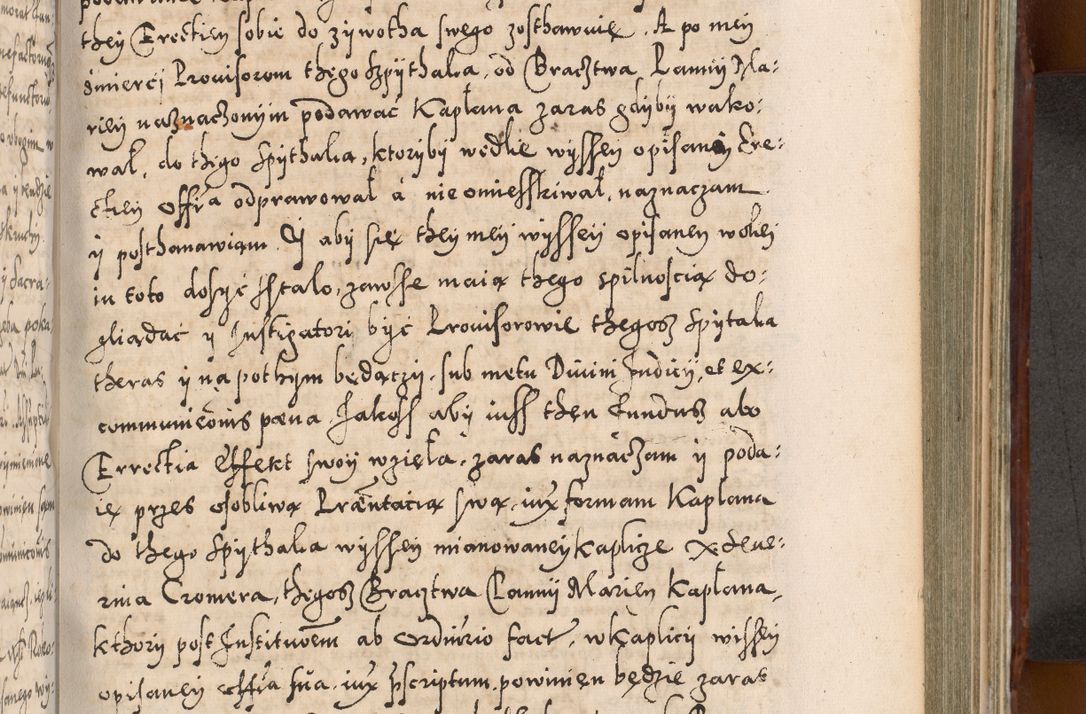 they Erectiey sobie do zywotha swego zosthawuię. A po mey
śmierci Prouisorom thego Szpythalia, od Bractwa Panny Ma-
riey naznaczonym podawać Kapłana zaras gdyby wako:
wał, do thego Spythalia, ktoryby wedlie wysszey opisaney Ere:
ctiey offia odprawował á nie omiesskiwał, naznaczam
y posthanawiam. Y aby się they mey wysszey opisaney woliey
in toto dosyć sstało, zawsse maią thego spilnoscią do:
gliądać y Instigatory być Prouisorowie thegosz Spytalia
theras y na pothym będączy, sub metu Diuini Iudicij, et ex:
communicōnis pœna Jakoss aby iuss then Fundusz abo
Errectia effekt swoy wzięła, zaras naznaczam y poda:
ię przes osobliwą Præntacią swą, iux formam Kapłana
do thego Spythalia wyssey mianowaney kaplicze X Seue:
rina Cromera, thegosz Bractwa Panny Mariey Kapłana,
kthory post Institucōem ab Ordinrio fact, w kaplicy wissey
opisaney offia sua iux pscriptum powinien będzie zaras